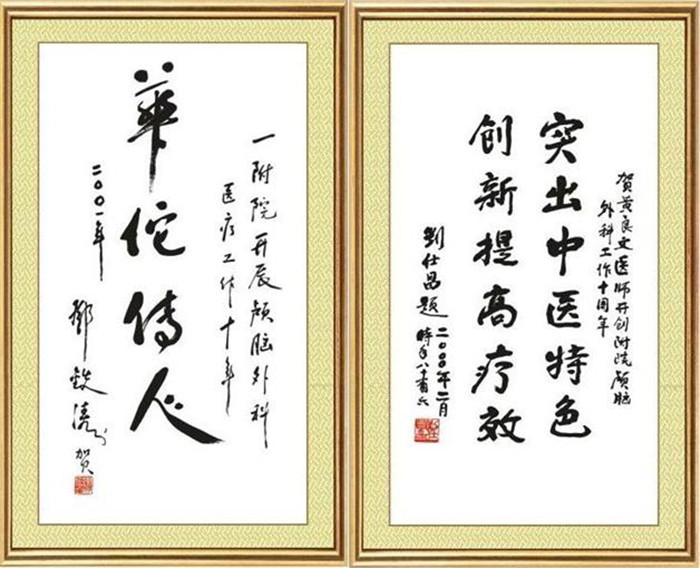 一附院开展颅脑外科
医疗工作十年
華佗傳人
二〇〇一年
鄧铁涛 贺
贺黄良文医师开创附院颅脑
外科工作十周年
突出中医特色
创新提高疗效
劉仕昌题 二〇〇〇年二月
时年八十有六